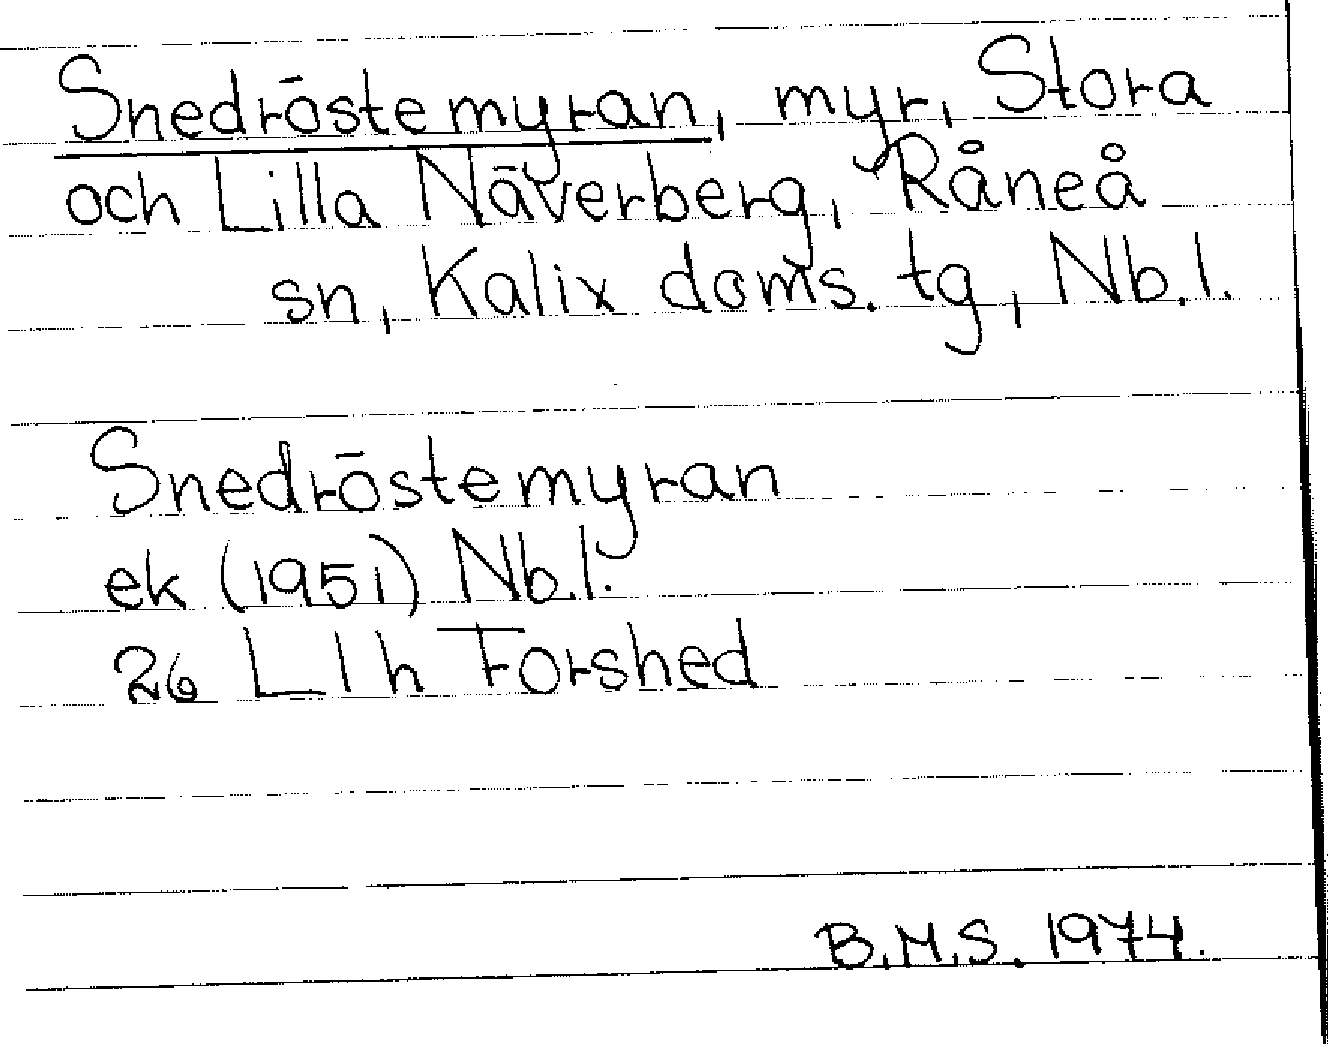 Snedröstemyran, myr, Stora
och Lilla Näverberg, Råneå
sn, Kalix doms. tg, Nb.l.
Snedröstemyran
ek (1951) Nb.l.
26 L l h Forshed
B.M.S. 1974.